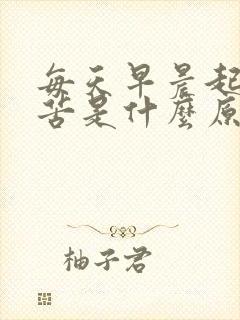 每天早晨起
苦是什麼原
柚子君